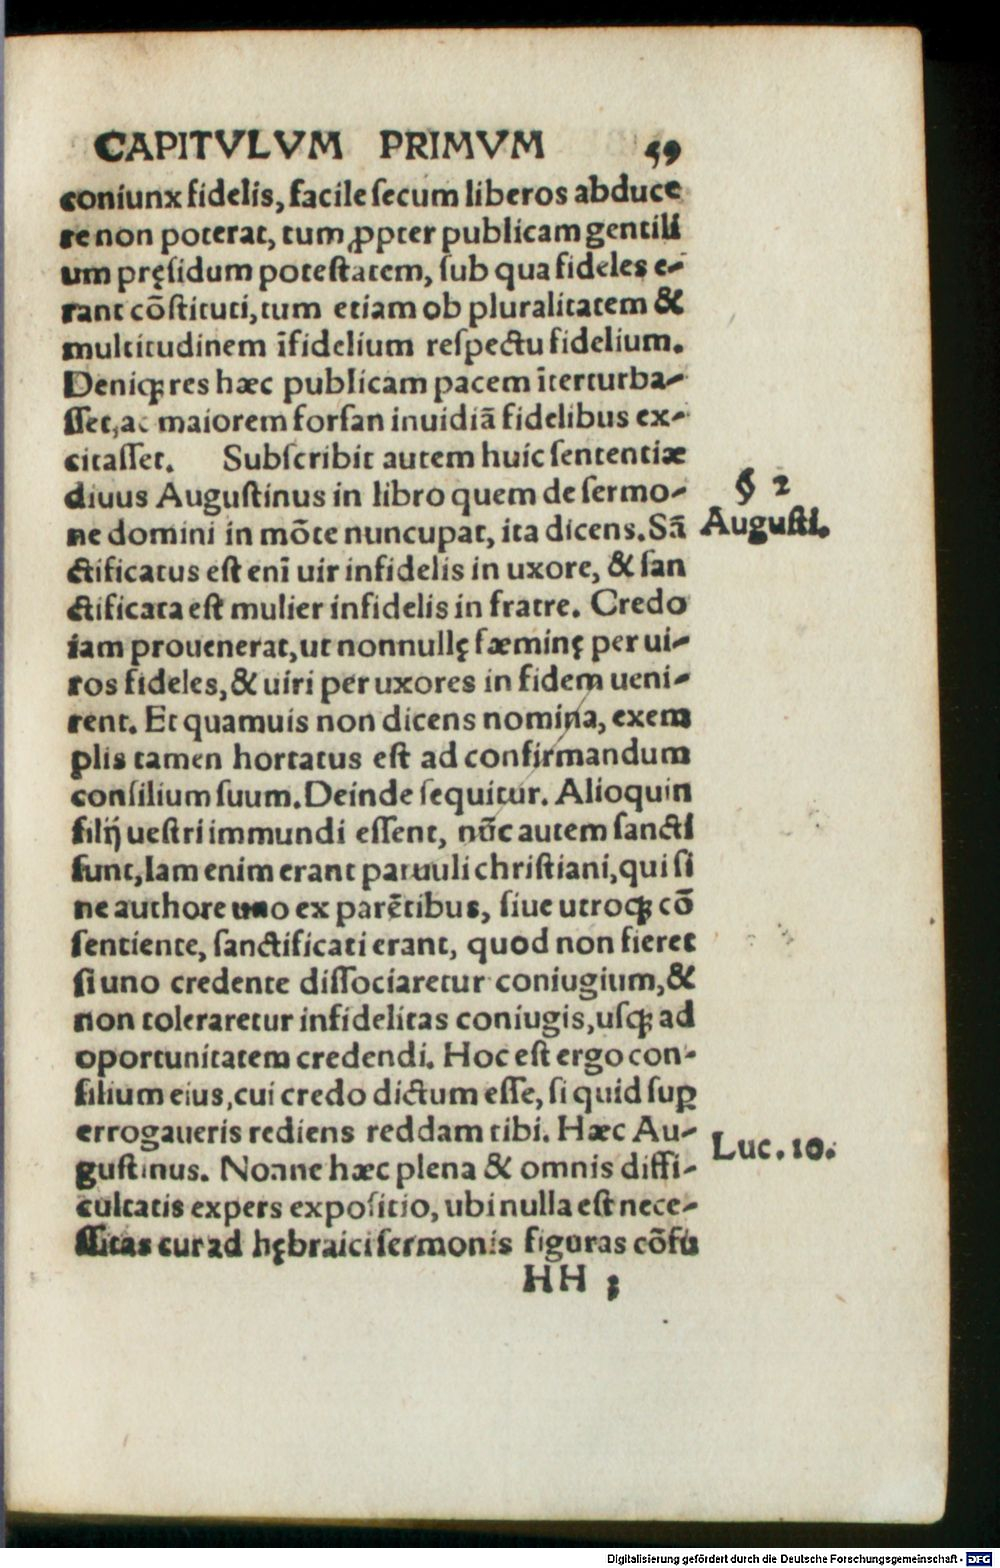 CAPITVLVM PRIMVM 59
coniunx fidelis, facile ſecum liberos abduce
re non poterat, tum ꝓpter publicam gentili
um pręſidum poteſtatem, ſub qua fideles e-
rant cõſtituti, tum etiam ob pluralitatem &
multitudinem ĩfidelium reſpectu fidelium.
Deniqꝫ res hæc publicam pacem ĩterturba-
ſſet, ac maiorem forſan inuidiã fidelibus ex-
citaſſet. Subſcribit autem huic ſententiæ
diuus Auguſtinus in libro quem de ſermo-
ne domini in mõte nuncupat, ita dicens. Sã
ctificatus eſt enĩ uir infidelis in uxore, & ſan
ctificata eſt mulier infidelis in fratre. Credo
iam prouenerat, ut nonnullę fæminę per ui-
ros fideles, & uiri per uxores in fidem ueni-
rent. Et quamuis non dicens nomina, exem
plis tamen hortatus eſt ad confirmandum
conſilium ſuum. Deinde ſequitur. Alioquin
filij ueſtri immundi eſſent, nũc autem ſancti
ſunt, Iam enim erant paruuli chriſtiani, qui ſi
ne authore uno ex parẽtibus, ſiue utroqꝫ cõ
ſentiente, ſanctificati erant, quod non fieret
ſi uno credente diſſociaretur coniugium, &
non toleraretur infidelitas coniugis, uſqꝫ ad
oportunitatem credendi. Hoc eſt ergo con-
ſilium eius, cui credo dictum eſſe, ſi quid ſuꝑ
errogaueris rediens reddam tibi. Hæc Au-
guſtinus. Nonne hæc plena & omnis diffi-
cultatis expers expoſitio, ubi nulla eſt nece-
ſſitas cur ad hębraici ſermonis figuras cõfu
HH 3
§ 2
Auguſti.
Luc. 10.
Digitalisierung gefördert durch die Deutsche Forschungsgemeinschaft - DFG